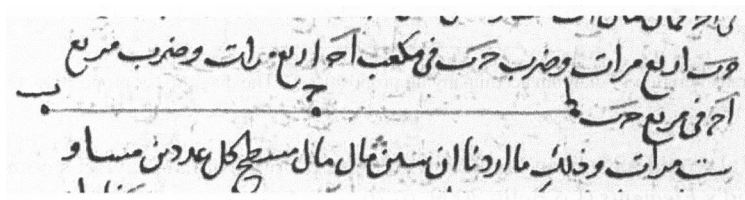 جب اربع مرات وضرب جب في مكعب اج اربع مرات وضرب مربع
اج في مربع جب ا ج ب
ست مرات وذلك ما اردنا ان نبين مال مال مسطح كل عددين مساو